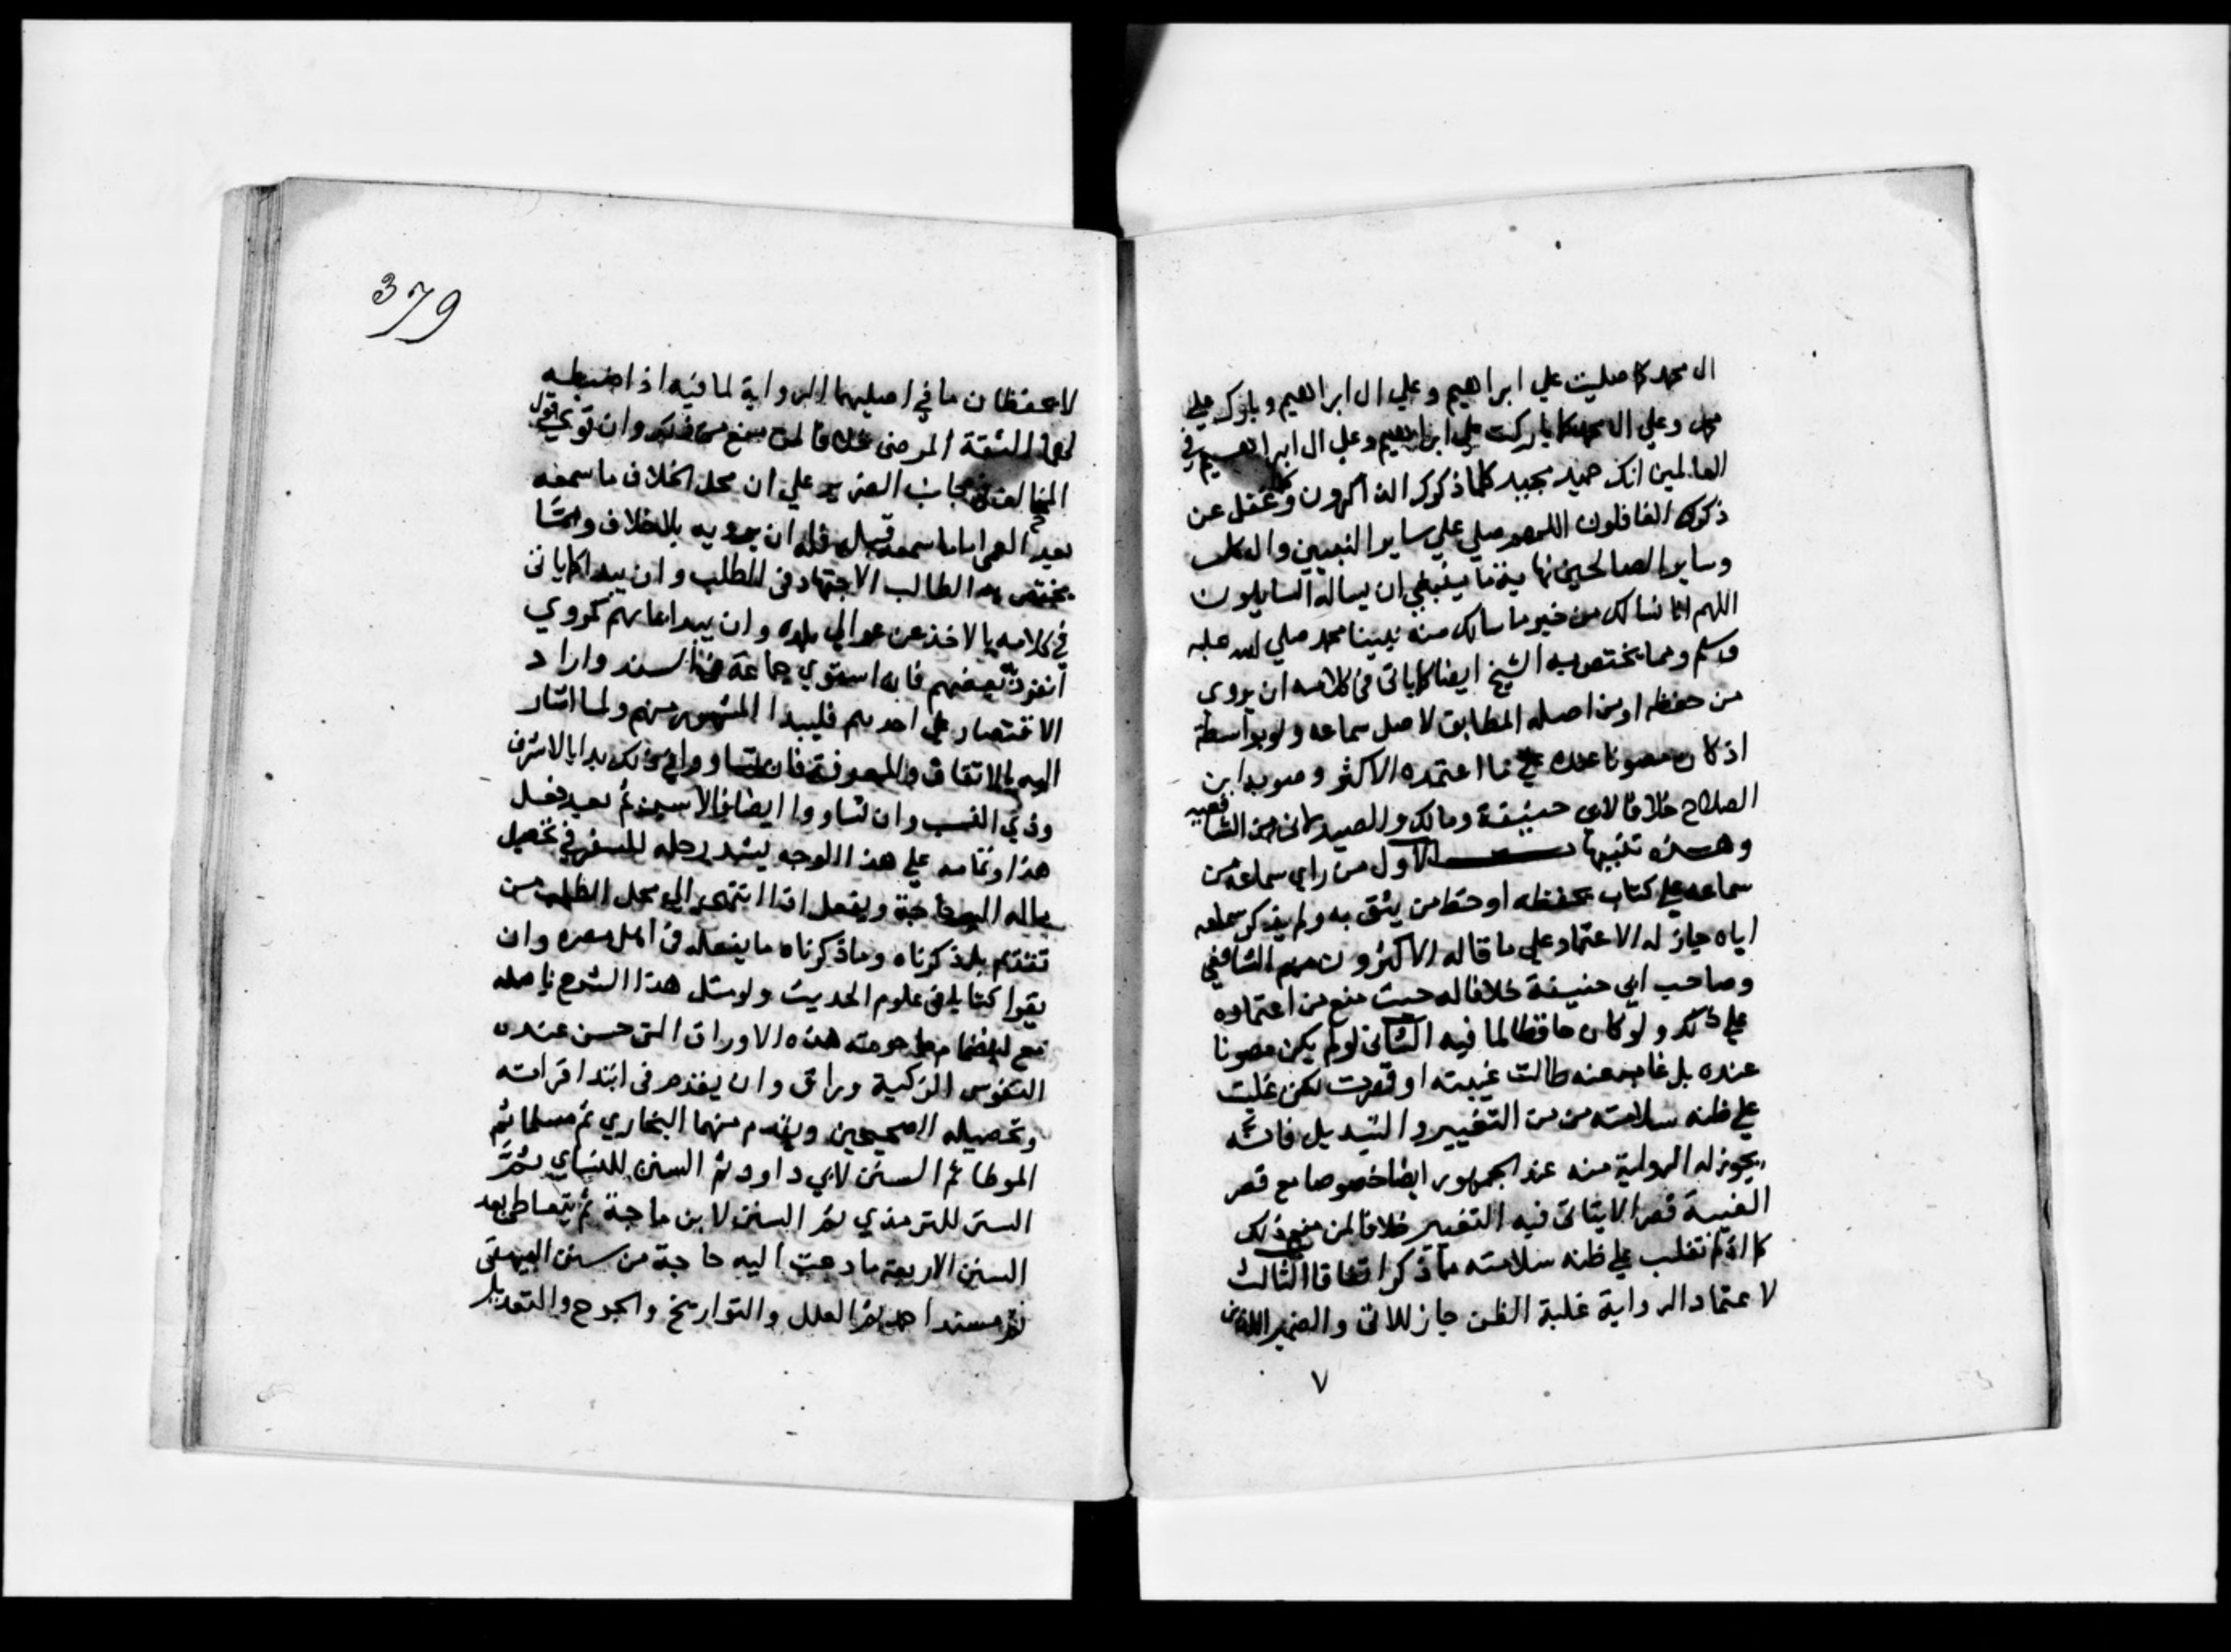 ال محمد كما صليت علي ابراهيم وعلي ال ابراهيم وبارك علي
محمد وعلي ال محمد كما باركت علي ابراهيم وعلي ال ابراهيم في
العالمين انك حميد مجيد كلما ذكرك الذاكرون وغفل عن
ذكرك الغافلون اللهم صلي علي ساير النبيين وال كل
وساير الصالحين نهاية ما ينبغي ان يساله السايلون
اللهم انا نسالك من خير ما سالك منه نبينا محمد صلي الله عليه
وسلم ومما يختص به الشيخ ايضا كما ياتي في كلامه ان يروي
من حفظه او من اصله المطابق لاصل سماعه ولو بواسطة
اذ كان مصونا عنده علي ما اعتمده الاكثر وصوبه ابن
الصلاح خلافا لابي حنيفة ومالك والصيدلاني من الشافعيه
وهذه تنبيهات الاول من راي سماعه من
سماعه علي كتاب بحفظه او خط من يثق به ولم يذكر سماعه
اياه جاز له الاعتماد علي ما قاله الاكثرون منهم الشافعي
وصاحب ابي حنيفة خلافا له حيث منع من اعتماده
علي ذلك ولو كان حافظا لما فيه الثاني لو لم يكن مصونا
عنده بل غاب عنه طالت غيبته او قصرت لكن غلبت
علي ظنه سلامته من من التغيير والتبديل فانه
يجوز له الرواية منه عند الجمهور ايضا خصوصا مع قصر
الغيبة قصرا لا يتاتي فيه التغيير خلافا لمن منع ذلك
كما اذا لم تغلب علي ظنه سلامته مما ذكر اتفاقا الثالث
لاعتماد الرواية غلبة الظن جاز للامي والضرير اللذين
٧
379
لا يحفظان ما في اصليهما الرواية لما فيه اذا ضبطه
لهما الثقة المرضي خلافا لمن منع من ذلك وان قوي قول
المخالف في جانب الضرير علي ان محل الخلاف ما سمعه
بعد العمي اما ما سمعه قبله فله ان يرويه بلا خلاف ومما
يختص به الطالب الاجتهاد في الطلب وان يبدا كما ياتي
في كلامه بالاخذ عن عوالي بلده وان يبدا بما بهم كمروي
انفرد بعضهم فان استوي جماعة في السند واراد
الاقتصار علي احدهم فليبدا المشهور منهم ولما اشار
اليه بالاتقان والمعرفة فان تساووا في ذلك بدا بالاشرف
وذي النسب وان تساووا ايضا فالاسن ثم بعد فعل
هذا وتمامه علي هذا الوجه يشد رحله للسفر في تحصيل
ما له اليه حاجة ويفعل اذا انتهي الي محل الطلب من
تقديم بلا ذكرناه وما ذكرناه ما يفعله في اهل مصره وان
يقرا كتابا في علوم الحديث ولو مثل هذا الشرح باصله
مع انضمام ما حوته هذه الاوراق التي حسن عنده
النفوس الزكية وراق وان يقدم في ابتدا قراته
وتحصيله الصحيحين ويقدم منهما البخاري ثم مسلما ثم
الموطا ثم السنن لابي داود ثم السنن للنساي ثم
السنن للترمذي ثم السنن لابن ماجة ثم يتعاطي بعد
السنن الاربعة ما دعت اليه حاجة من سنن البيهقي
ثم مسند احمد ثم العلل والتواريخ والجرح والتعديل